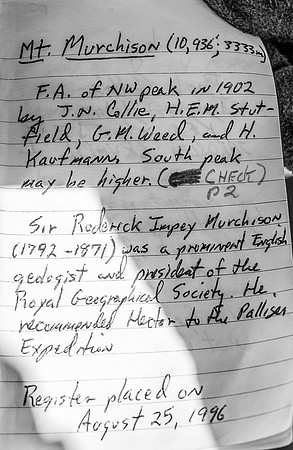 Mt. Murchison (10,936'; 3333m)
F.A. of NW peak in 1902
by J.N. Collie, H.E.M. Stut-
field, G.M. Weed, and H.
Kaufmann. South peak
may be higher. (CHECK)
P2
Sir Roderick Impey Murchison
(1792-1871) was a prominent English
geologist and president of the
Royal Geographical Society. He
recommended Hector to the Palliser
Expedition
Register placed on
August 25, 1996